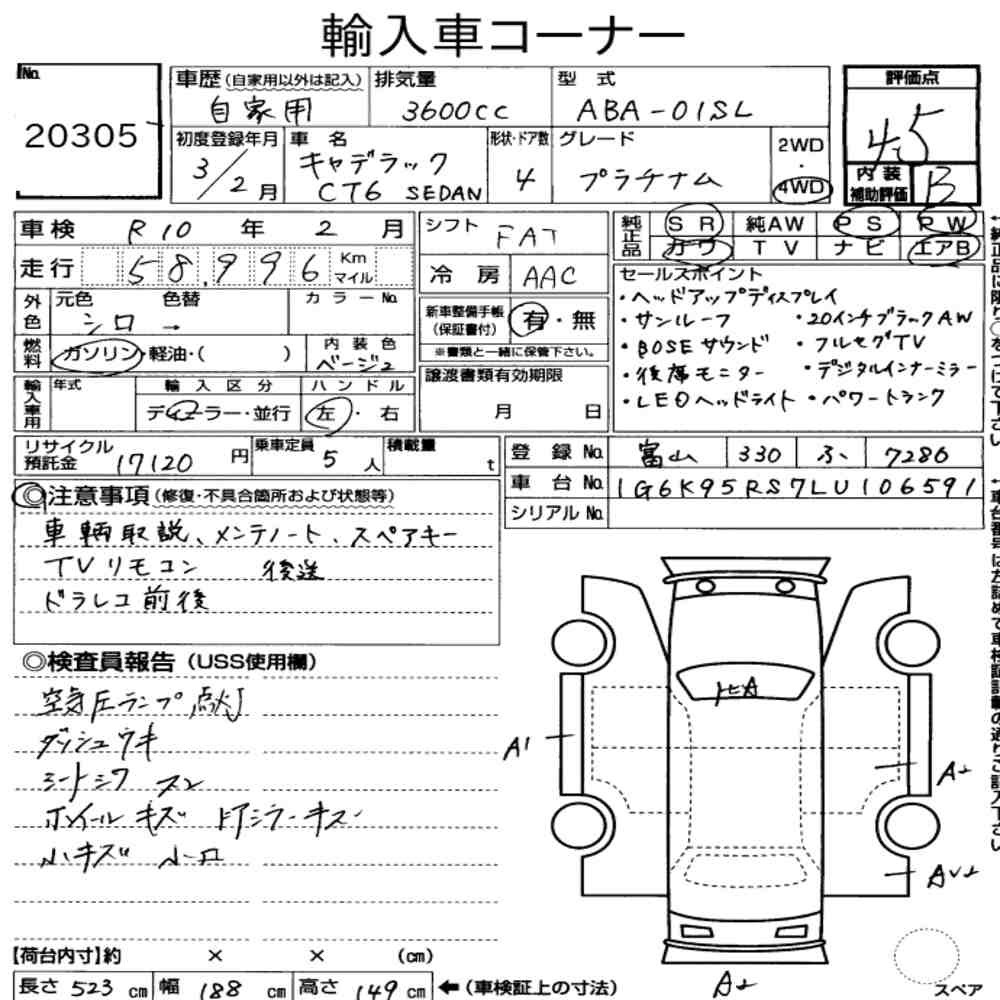 輸入車コーナー
No.
20305
車歴(自家用以外は記入)
自家用
排気量
3600cc
型式
ABA-01SL
評価点
4.5
初度登録年月
3/2月
車名
キャデラック
CT6 SEDAN
形状・ドア数
4
グレード
プラチナム
2WD
・
4WD
内装
補助評価
B
車検 R10年 2月
走行 58,996 Km マイル
外色 元色 色替 カラーNo.
シロ →
燃料 ガソリン・軽油・( )
内装色
ベージュ
輸入車用 年式
輸入区分
ディーラー・並行
ハンドル
左・右
シフト FAT
冷房 AAC
新車整備手帳
(保証書付)
有・無
※書類と一緒に保管下さい。
譲渡書類有効期限
月 日
純正品 SR 純AW PS PW
カワ TV ナビ エアB
セールスポイント
・ヘッドアップディスプレイ
・サンルーフ ・20インチブラックAW
・BOSEサウンド ・フルセグTV
・後席モニター ・デジタルインナーミラー
・LEDヘッドライト ・パワートランク
リサイクル
預託金 17120円
乗車定員
5人
積載量
t
登録No. 富山 330 ふ 7286
車台No. 1G6K95RS7LU106591
シリアルNo.
◎注意事項(修復・不具合箇所および状態等)
車輌取説、メンテノート、スペアキー
TVリモコン 後送
ドラレコ前後
◎検査員報告(USS使用欄)
空気圧ランプ点灯
ダッシュウキ
シートシワ スレ
ホイールキズ ドアミラーキズ
小キズ 小凹
A1
A2
AU2
A2
スペア
【荷台内寸】約 × × (cm)
長さ 523 cm 幅 188 cm 高さ 149 cm ←(車検証上の寸法)